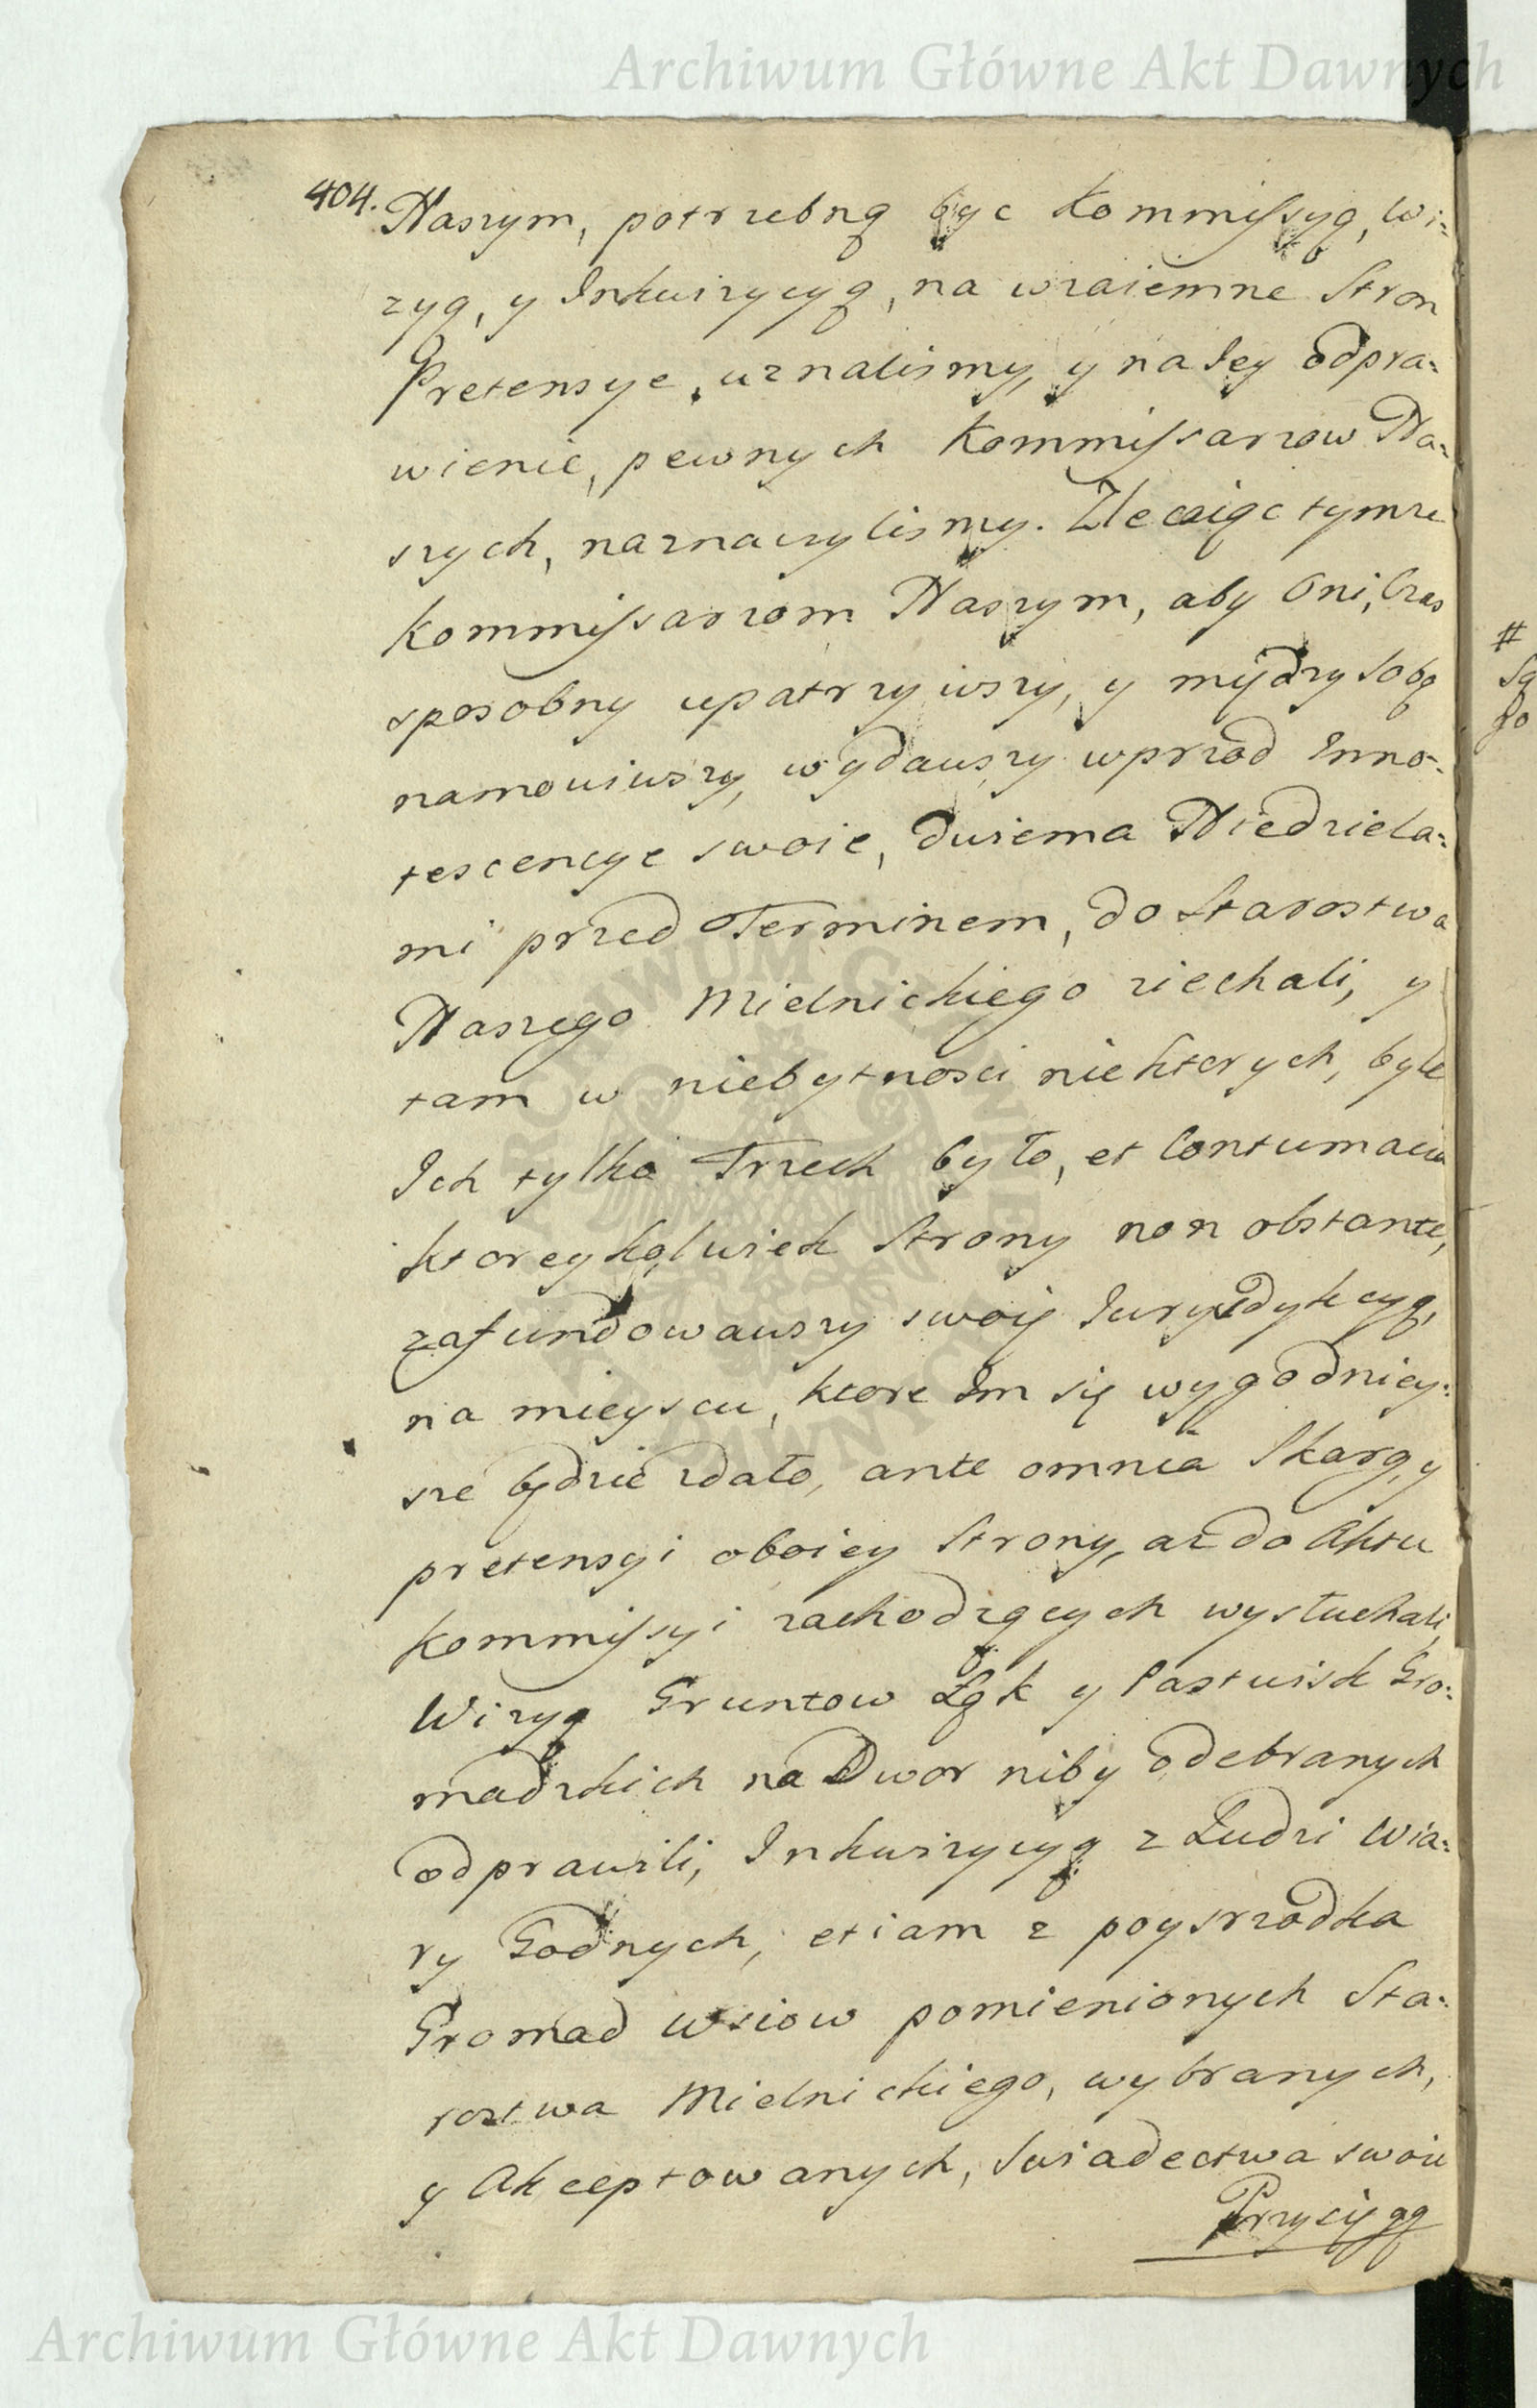 Archiwum Główne Akt Dawnych
404. Naszym, potrzebną byc Kommissyą, Wi=
zyą, y Inkwizycyą, na wzaiemne Stron
Pretensye, uznalismy, y na Iey odpra=
wienie, pewnych Kommissarzow Na=
szych, naznaczylismy. Zlecaiąc tymze
Kommissarzom Naszym, aby Oni, Czas
sposobny upatrzywszy, y między sobą
namowiwszy, wydawszy wprzod Inno=
tescencye swoie, dwiema Niedziela=
mi przed Terminem, do Starostwa
Naszego Mielnickiego ziechali, y
tam w niebytnosci niektorych, byle
Ich tylko Trzech było, et Contumacia
ktoreykolwiek Strony non obstante,
zafundowawszy swoię Iurysdykcyą,
na mieyscu, ktore Im się wygodniey=
sze będzie zdało, ante omnia Skarg, y
pretensyi oboiey Strony, az do Aktu
Kommissyi zachodzących wysłuchali,
Wizyą Gruntow Łąk y Pastwisk Gro=
madzkich na Dwor niby odebranych
odprawili, Inkwizycyą z Ludzi Wia=
ry Godnych, etiam z poysrzodka
Gromad Wsiow pomienionych Sta=
rostwa Mielnickiego, wybranych,
y Akceptowanych, Swiadectwa swoie
Przysięgą
#
Są
Archiwum Główne Akt Dawnych